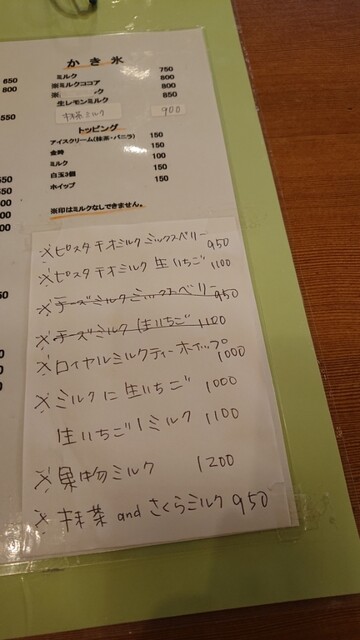 650
800
550
かき氷
ミルク 750
※ミルクココア 800
※ ク 800
生レモンミルク 850
抹茶ミルク 900
トッピング
アイスクリーム(抹茶・バニラ) 150
金時 150
ミルク 100
白玉3個 150
ホイップ 150
※印はミルクなしできません。
※ピスタチオミルクミックスベリー 950
※ピスタチオミルク生いちご 1100
※チーズミルクミックスベリー 950
※チーズミルク生いちご 1100
※ロイヤルミルクティーホイップ 1000
※ミルクに生いちご 1000
生いちごミルク 1100
※果物ミルク 1200
※抹茶andさくらミルク 950